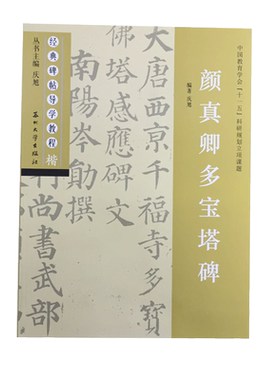 中国教育学会「十一五」科研规划立项课题
颜真卿多宝塔碑
编著 庆旭
大唐西京千福寺多寶
佛塔感應碑文
南陽岑勛撰
尚書武部
经典碑帖导学教程 楷
丛书主编 庆旭
苏州大学出版社